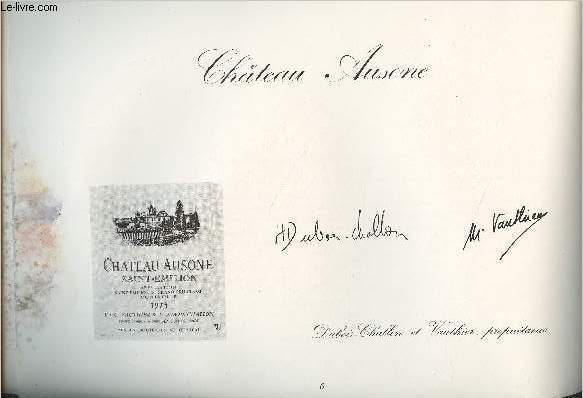 Le-livre.com
Château Ausone
CHATEAU AUSONE
SAINT-EMILION
APPELLATION
1975
HDubois-Challon
M. Vauthier
Dubois-Challon et Vauthier, propriétaires
6